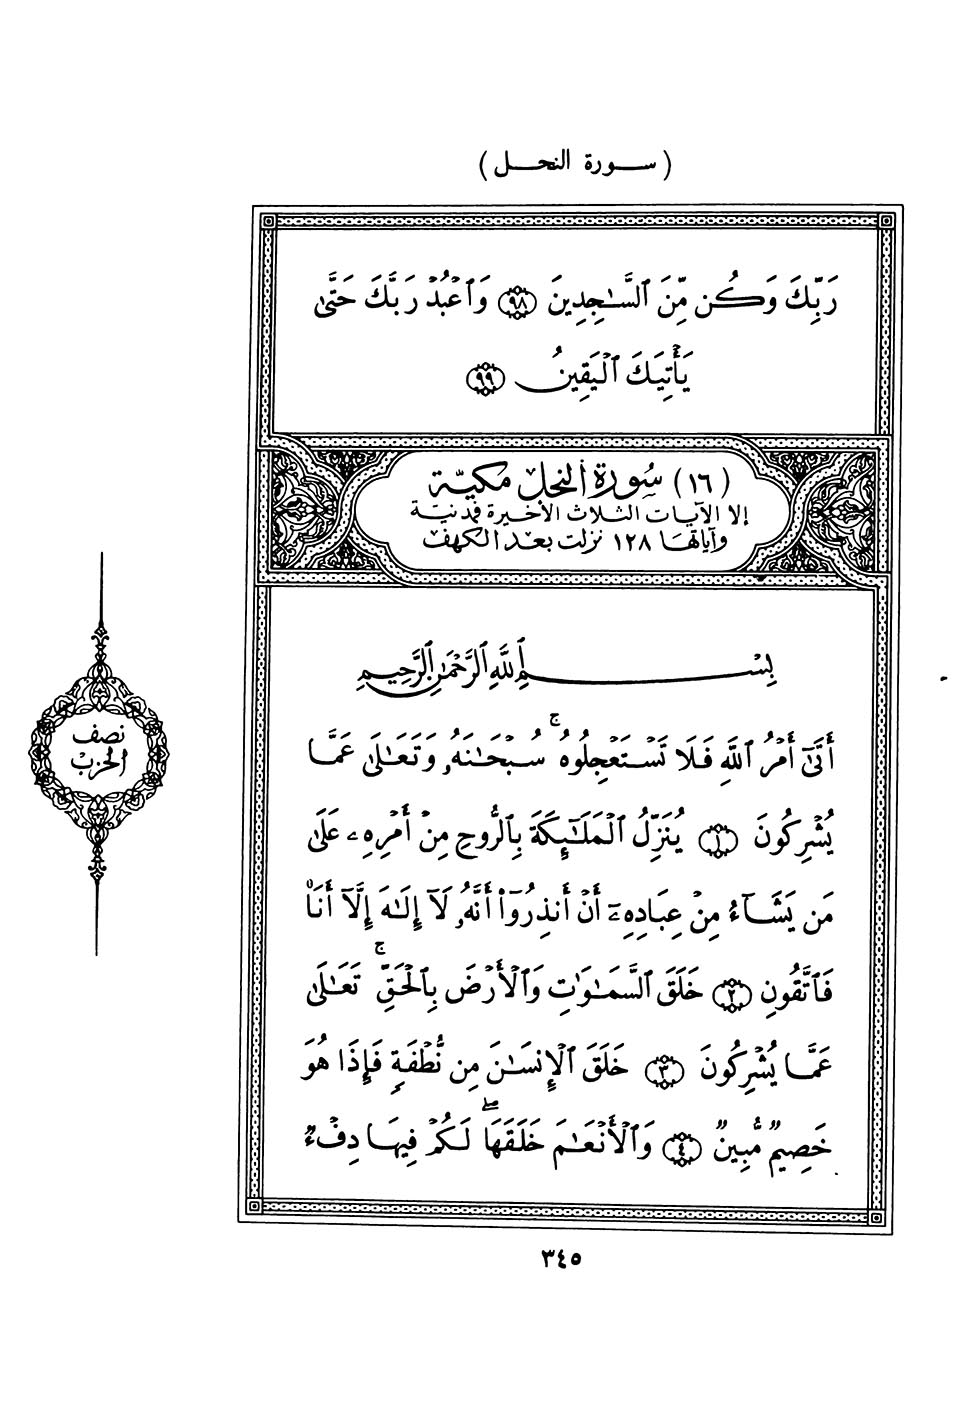 (سورة النحل)
رَبِّكَ وَكُن مِّنَ ٱلسَّـٰجِدِينَ ٩٨ وَٱعْبُدْ رَبَّكَ حَتَّىٰ
يَأْتِيَكَ ٱلْيَقِينُ ٩٩
(١٦) سُورَة النحل مكيّة
إلا الآيات الثلاث الأخيرة فمدنية
وآياتها ١٢٨ نزلت بعد الكهف
نصف
الحزب
بِسْمِ ٱللَّهِ ٱلرَّحْمَـٰنِ ٱلرَّحِيمِ
أَتَىٰٓ أَمْرُ ٱللَّهِ فَلَا تَسْتَعْجِلُوهُ ۚ سُبْحَـٰنَهُۥ وَتَعَـٰلَىٰ عَمَّا
يُشْرِكُونَ ١ يُنَزِّلُ ٱلْمَلَـٰٓئِكَةَ بِٱلرُّوحِ مِنْ أَمْرِهِۦ عَلَىٰ
مَن يَشَآءُ مِنْ عِبَادِهِۦٓ أَنْ أَنذِرُوٓا۟ أَنَّهُۥ لَآ إِلَـٰهَ إِلَّآ أَنَا۠
فَٱتَّقُونِ ٢ خَلَقَ ٱلسَّمَـٰوَٰتِ وَٱلْأَرْضَ بِٱلْحَقِّ ۚ تَعَـٰلَىٰ
عَمَّا يُشْرِكُونَ ٣ خَلَقَ ٱلْإِنسَـٰنَ مِن نُّطْفَةٍ فَإِذَا هُوَ
خَصِيمٌ مُّبِينٌ ٤ وَٱلْأَنْعَـٰمَ خَلَقَهَا ۖ لَكُمْ فِيهَا دِفْءٌ
٣٤٥